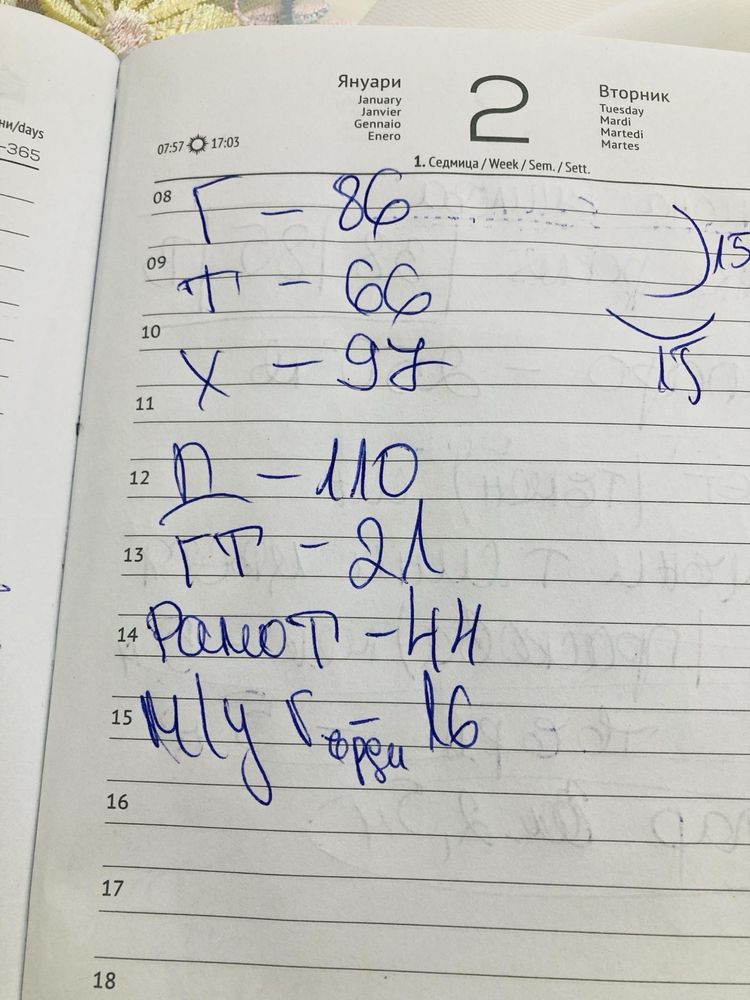 ни/days
-365
Януари
January
Janvier
Gennaio
Enero
2
Вторник
Tuesday
Mardi
Martedi
Martes
07:57 17:03
1. Седмица / Week / Sem. / Sett.
08 Г - 86
15
09 Т - 66
10 Х - 97
15
11
12 П - 110
13 ГТ - 21
14 Рамот - 44
15 М/у Гърди - 16
16
17
18